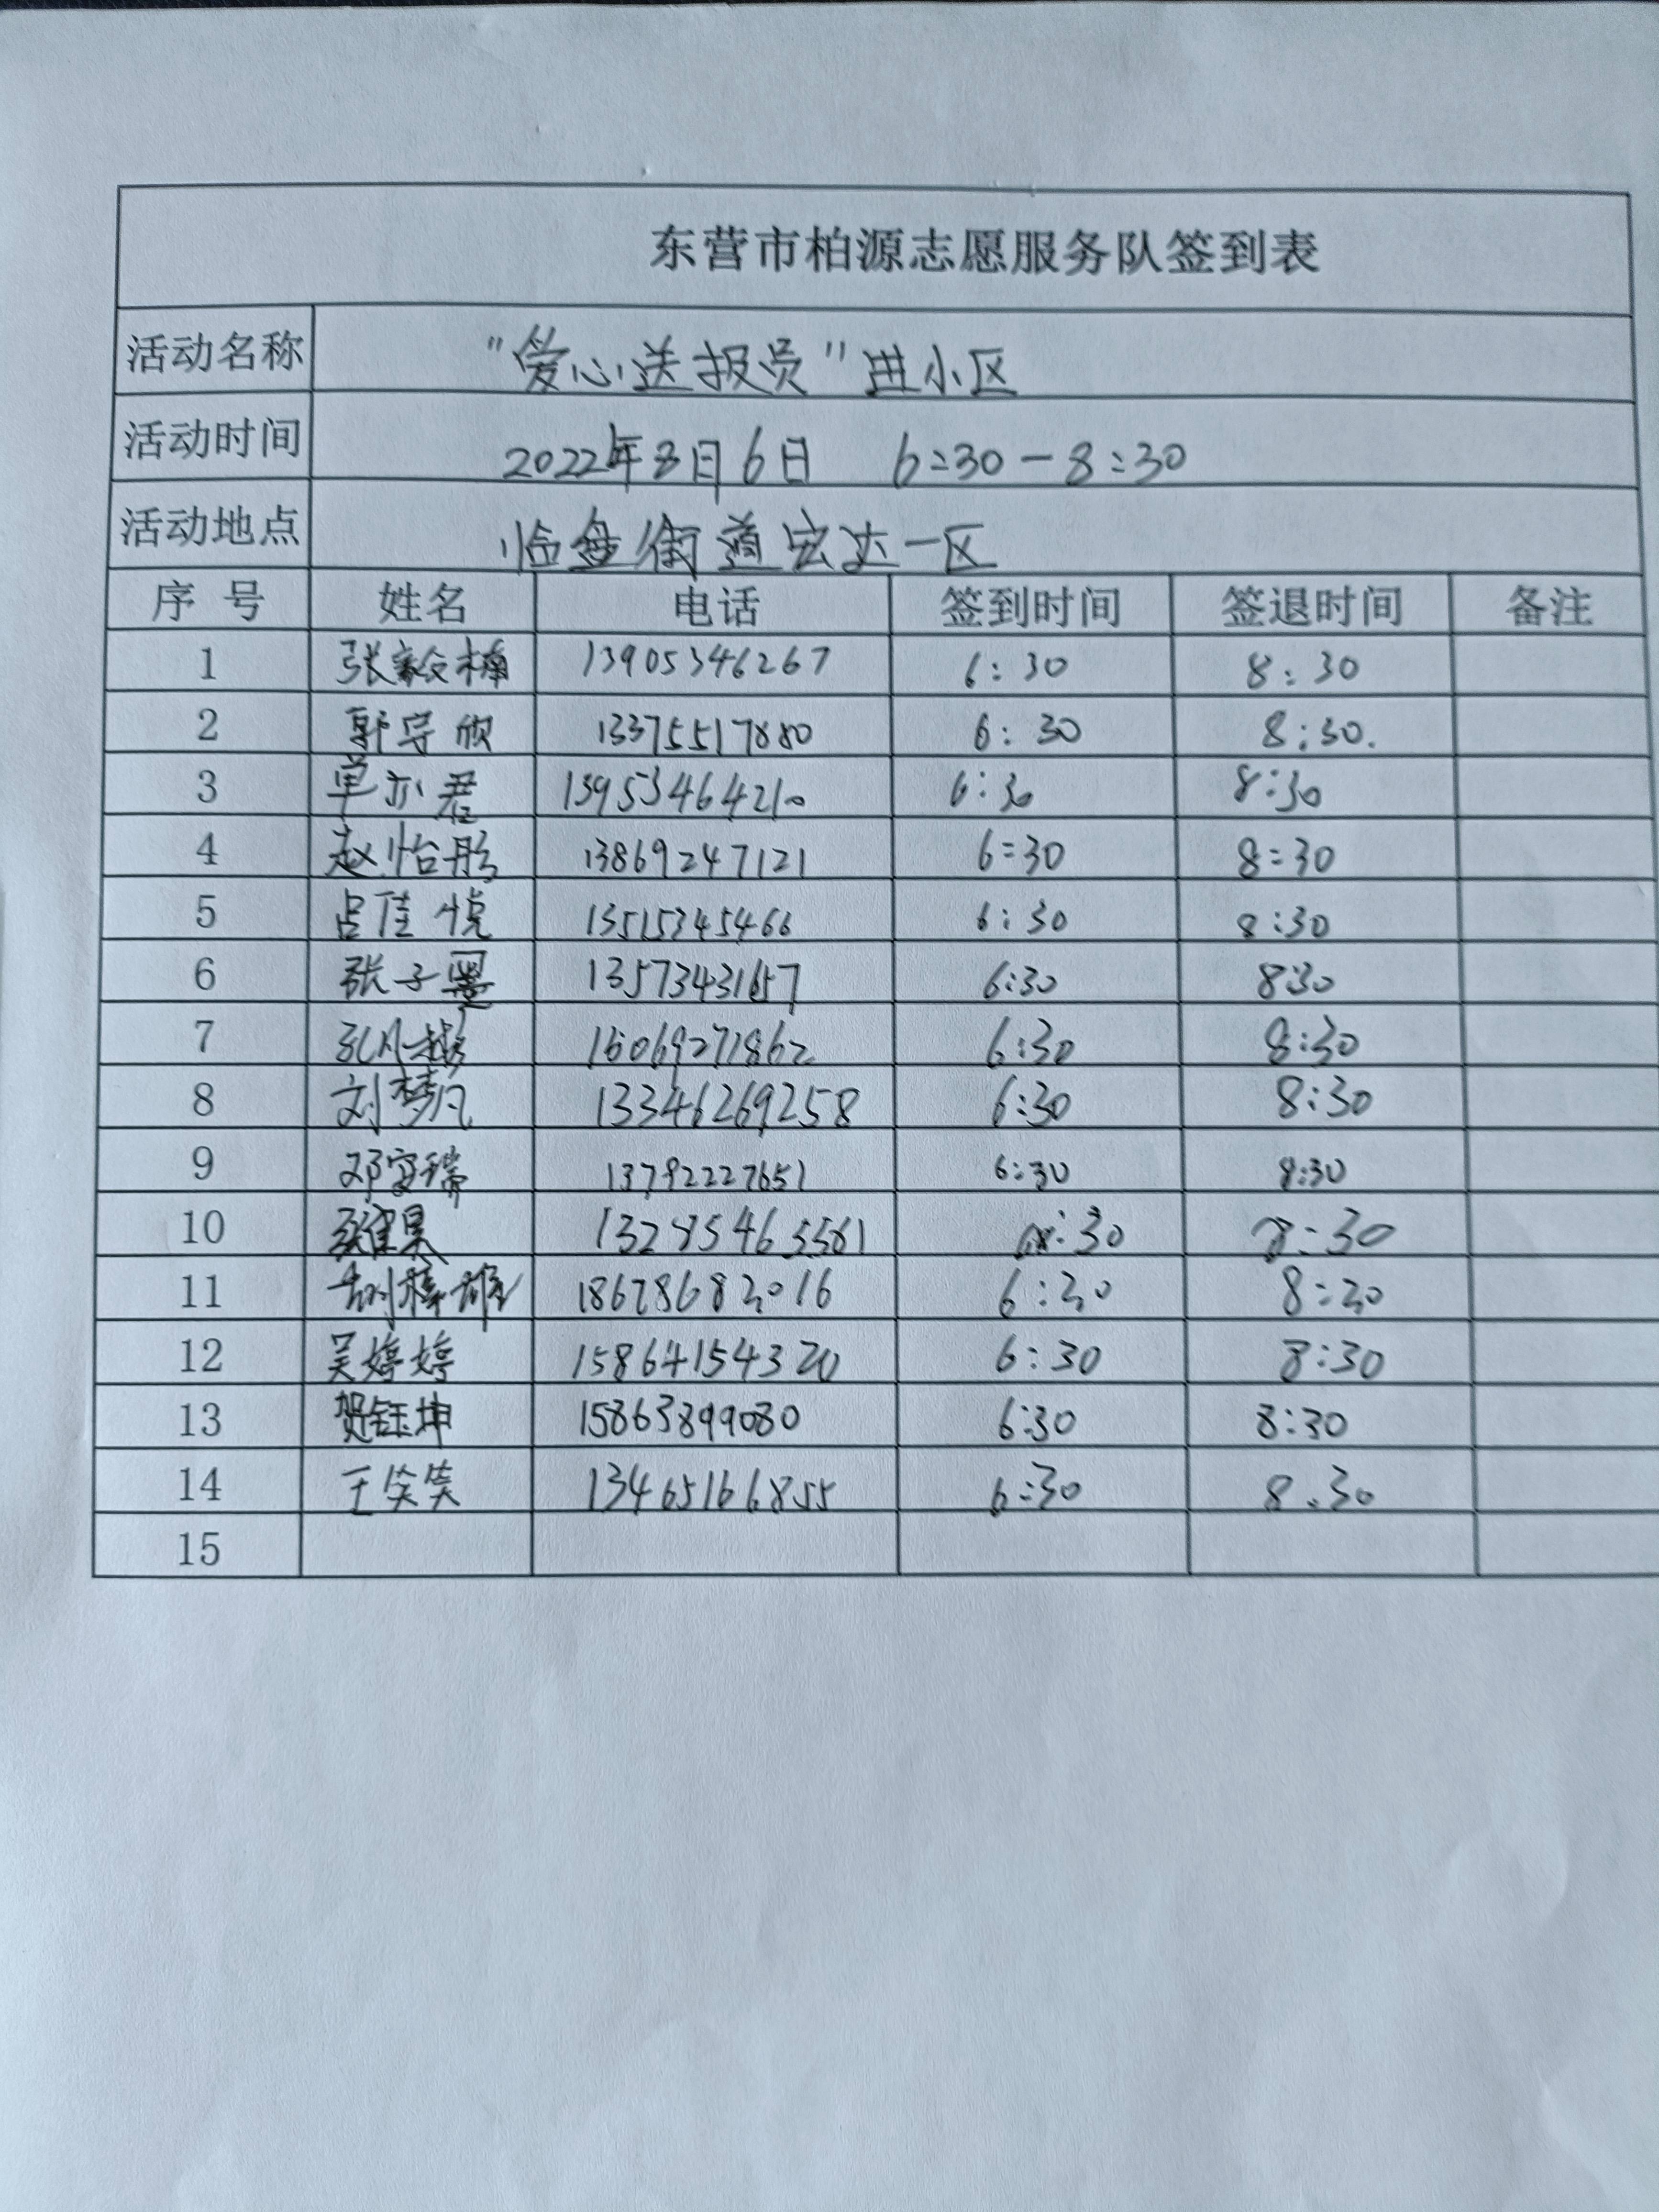 东营市柏源志愿服务队签到表
活动名称 "爱心送报员"进小区
活动时间 2022年8月6日 6:30-8:30
活动地点 临盘街道宏达一区
序号 姓名 电话 签到时间 签退时间 备注
1 张毅楠 13905346267 6:30 8:30
2 郭宇欣 13375517880 6:30 8:30.
3 单亦君 13953464210 6:30 8:30
4 赵怡彤 13869247121 6:30 8:30
5 占佳悦 13515345466 6:30 8:30
6 张子墨 13573431657 6:30 8:30
7 6:30 8:30
8 刘梦凡 13346269258 6:30 8:30
9 邓安瑞 13792227651 6:30 8:30
10 :30 8:30
11 18678682016 6:30 8:30
12 吴婷婷 15864154320 6:30 8:30
13 贺钰坤 15863899080 6:30 8:30
14 王笑笑 13465166855 6:30 8.30
15